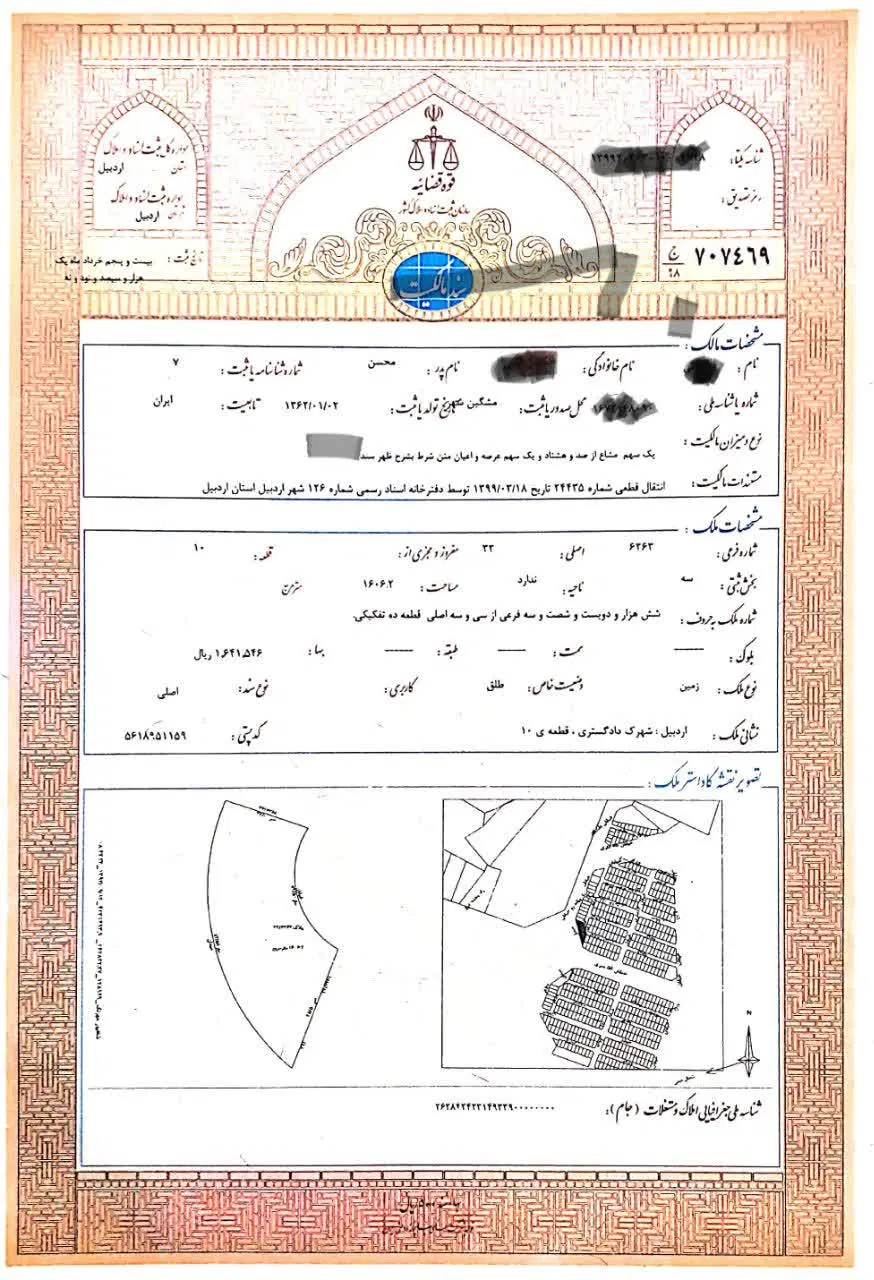 قوه قضائیه
سازمان ثبت اسناد و املاک کشور
اداره کل ثبت اسناد و املاک
استان: اردبیل
اداره ثبت اسناد و املاک
شهرستان: اردبیل
تاریخ ثبت: بیست و پنجم خرداد ماه یک هزار و سیصد و نود و نه
شناسه یکتا:
رمز تصدیق:
ج
۹۸
۷۰۷٤٦۹
سند مالکیت
مشخصات مالک:
نام: نام خانوادگی: نام پدر: محسن شماره شناسنامه یا ثبت: ۷
شماره یا شناسه ملی: محل صدور یا ثبت: مشگین شهر تاریخ تولد یا ثبت: ۱۳۶۲/۰۱/۰۲ تابعیت: ایران
نوع و میزان مالکیت: یک سهم مشاع از صد و هشتاد و یک سهم عرصه و اعیان متن شرط بشرح ظهر سند
مستندات مالکیت: انتقال قطعی شماره ۲۴۴۳۵ تاریخ ۱۳۹۹/۰۳/۱۸ توسط دفترخانه اسناد رسمی شماره ۱۲۶ شهر اردبیل استان اردبیل
مشخصات ملک:
شماره فرعی: ۶۲۶۳ اصلی: ۳۳ مفروز و مجزی از: قطعه: ۱۰
بخش ثبتی: سه ناحیه: ندارد مساحت: ۱۶۰۶.۲ مترمربع
شماره ملک به حروف: شش هزار و دویست و شصت و سه فرعی از سی و سه اصلی قطعه ده تفکیکی.
بلوک: ------ سمت: ------ طبقه: ------ بها: ۱,۶۴۱,۵۴۶ ریال
نوع ملک: زمین وضعیت خاص: طلق کاربری: نوع سند: اصلی
نشانی ملک: اردبیل : شهرک دادگستری ، قطعه ی ۱۰ کد پستی: ۵۶۱۸۹۵۱۱۵۹
تصویر نقشه کاداستر ملک:
N
شناسه ملی جغرافیایی املاک و مستغلات (جام):